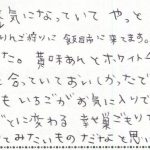 気になっていて やっと
りんご狩りに 飯田市に来てます。
た。 黄味あんとホワイト
と合っていておいしかったで
も いちごがお気に入りで
どに変わる 巣ごもり
てみたいものだなと思い